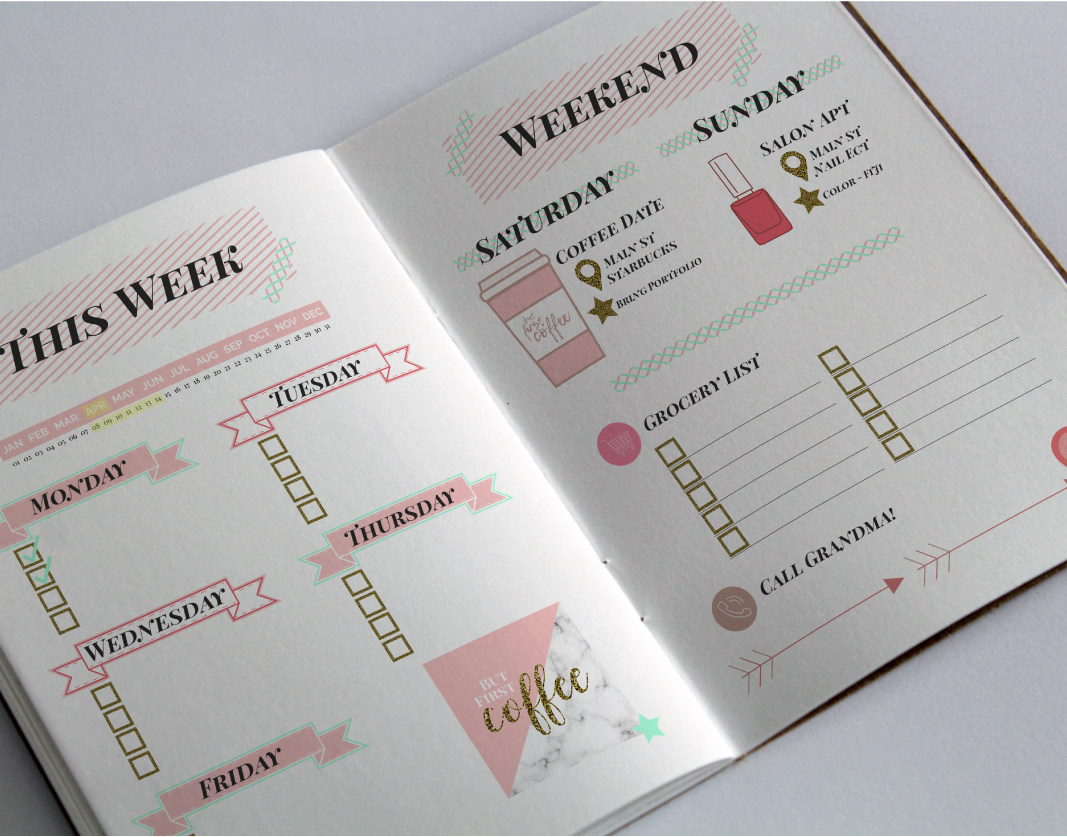 This Week
JAN FEB MAR APR MAY JUN JUL AUG SEP OCT NOV DEC
01 02 03 04 05 06 07 08 09 10 11 12 13 14 15 16 17 18 19 20 21 22 23 24 25 26 27 28 29 30 31
Monday
Tuesday
Wednesday
Thursday
Friday
BUT
FIRST
coffee
Weekend
Saturday
Coffee Date
Main St
Starbucks
Bring Portfolio
but
first
coffee
Sunday
Salon Apt
Main St
Nail Ect
Color -
Grocery List
Call Grandma!